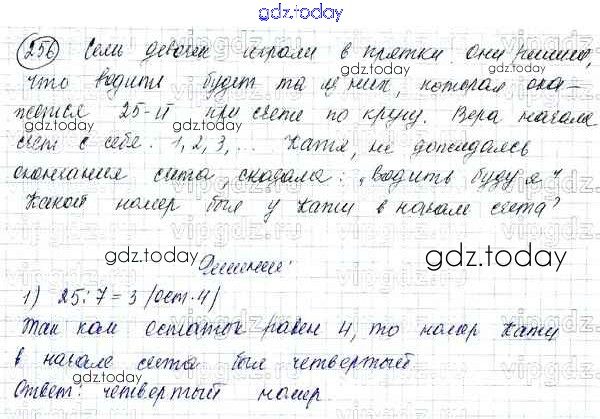 gdz.today
256 Семь девочек играли в прятки. они решили,
что водить будет та из них, которая ока-
жется 25-й при счете по кругу. Вера начала
счет с себя. 1, 2, 3, ... Катя, не дожидаясь
окончания счета, сказала: „Водить буду я"
Какой номер был у Кати в начале счета?
Решение:
1) 25:7=3 (ост.4)
Так как остаток равен 4, то номер Кати
в начале счета был четвертый.
Ответ: четвертый номер.
gdz.today
gdz.today
gdz.today
gdz.today
gdz.today
gdz.today
gdz.today